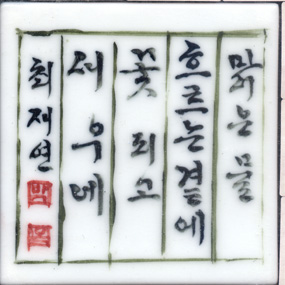 맑은 물
흐르는 곁에
꽃 피고
새 우네
최재연